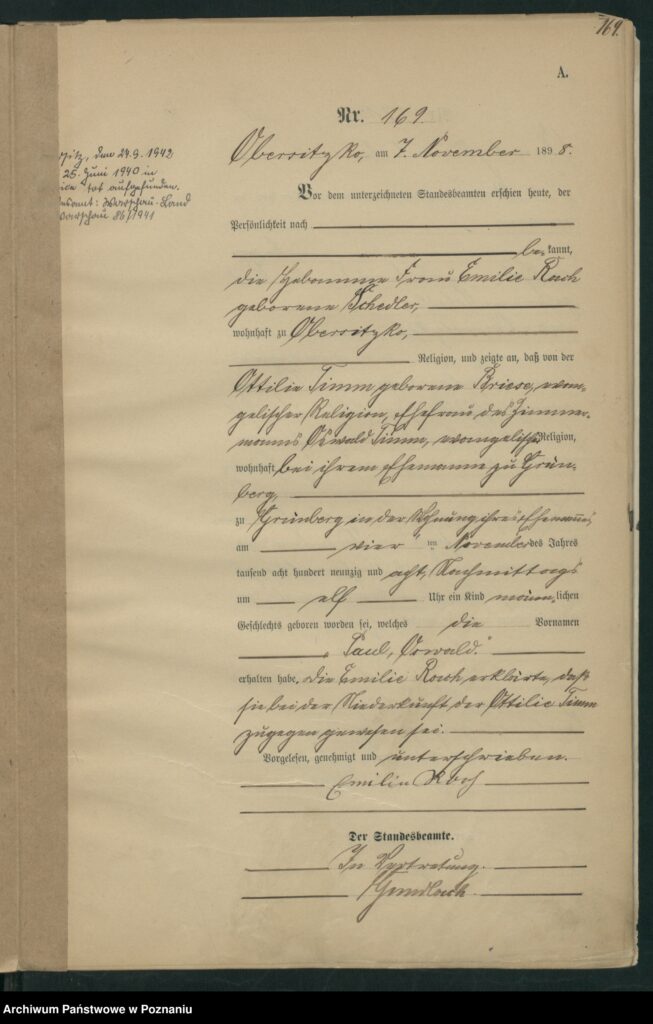 169.
A.
Nr. 169.
Obersitzko, am 7. November 1898.
Vor dem unterzeichneten Standesbeamten erschien heute, der
Persönlichkeit nach
bekannt,
die Hebamme Frau Emilie Koch
geborene Schedler,
wohnhaft zu Obersitzko,
Religion, und zeigte an, daß von der
Ottilie Timm geborene Briese, evan-
gelischer Religion, Ehefrau des Zimmer-
manns Oswald Timm, evangelischer Religion,
wohnhaft bei ihrem Ehemanne zu Grün-
berg,
zu Grünberg in der Wohnung ihres Ehemannes
am vier ten November des Jahres
tausend acht hundert neunzig und acht, Nachmittags
um elf Uhr ein Kind männlichen
Geschlechts geboren worden sei, welches die Vornamen
„Paul, Oswald."
erhalten habe. Die Emilie Koch erklärte, daß
sie bei der Niederkunft der Ottilie Timm
zugegen gewesen sei.
Vorgelesen, genehmigt und unterschrieben.
Emilie Koch
Der Standesbeamte.
In Vertretung.
Gundlach
itz, den 24.9.1942
25. Juni 1940 in
tot aufgefunden.
Warschau-Land
Warschau 86/1941
Archiwum Państwowe w Poznaniu